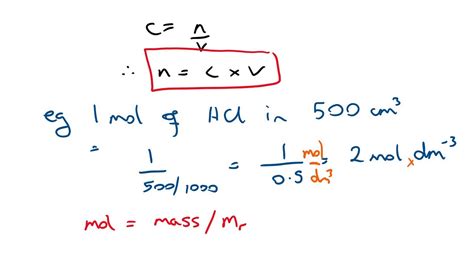 c = n/v
∴ n = c x v
eg 1 mol of HCl in 500 cm³
= 1/500/1000 = 1/0.5 mol/dm³ = 2 mol x dm⁻³
mol = mass / Mr